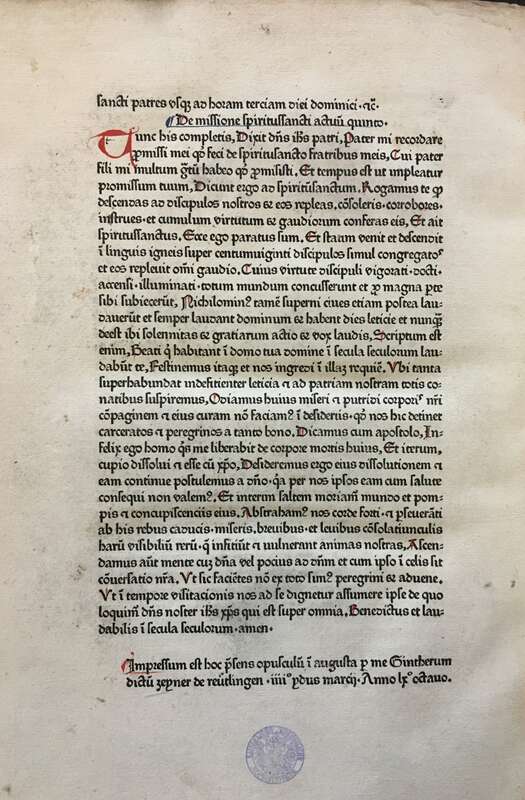 sancti patres vsqꝫ ad horam terciam diei dominici · ⁊cͣ.
De missione spiritussancti actuū quinto.
Tunc his completis, Dixit dn̄s ihs̄ patri, Pater mi recordare
ꝓmissi mei qḋ feci de spiritusancto fratribus meis, Cui pater
fili mi multum gr̄tū habeo qḋ ꝓmisisti. Et tempus est ut impleatur
promissum tuum, Dicunt ergo ad spiritūsanctum. Rogamus te ꝙ
descendas ad discipulos nostros & eos repleas, cōsoleris · corrobores,
instrues · et cumulum virtutum & gaudiorum conferas eis, Et ait
spiritussanctus. Ecce ego paratus sum. Et statim venit et descendit
ī linguis igneis super centumuiginti discipulos simul congregatos
et eos repleuit om̄i gaudio. Cuius virtute discipuli vigorati · docti ·
accensi · illuminati · totum mundum concusserunt et ꝓ magna ꝑte
sibi subiecerūt, Nichilomin⁹ tamē superni ciues etiam postea lau-
dauerūt et semper laudant dominum & habent dies leticie et nunqꝫ
deest ibi solennitas & gratiarum actio & vox laudis, Scriptum est
enim, Beati q̇ habitant ī domo tua domine ī secula seculorum lau-
dabūt te, Festinemus itaqꝫ et nos ingredi ī illaꝫ requiē. Vbi tanta
superhabundat indefitienter leticia ⁊ ad patriam nostram totis co-
natibus suspiremus, Odiamus huius miseri ⁊ putridi corporis nr̄i
cōpaginem ⁊ eius curam nō faciam⁹ ī desideriis · qḋ nos hic detinet
carceratos ⁊ peregrinos a tanto bono. Dicamus cum apostolo, In-
felix ego homo q̇s me liberabit de corpore mortis huius, Et iterum,
cupio dissolui ⁊ esse cū xp̄o, Desideremus ergo eius dissolutionem ⁊
eam continue postulemus a dn̄o · q̇a per nos ipsos eam cum salute
consequi non valem⁹. Et interim saltem moriam̄ mundo et pom-
pis ⁊ concupiscenciis eius, Abstraham⁹ nos corde forti · ⁊ ꝑseuerāti
ab his rebus caducis · miseris, breuibus · et leuibus cōsolatiunculis
harū visibiliū rerū · q̄ inficiūt ⁊ uulnerant animas nostras, Ascen-
damus aūt mente cuꝫ dn̄a vel pocius ad dn̄m et cum ipso ī celis sit
cōuersatio nr̄a. Vt sic faciētes nō ex toto sim⁹ peregrini & aduene.
Vt ī tempore visitacionis nos ad se dignetur assumere ipse de quo
loquim̄ dn̄s noster ihs̄ xp̄s qui est super omnia, Benedictus et lau-
dabilis ī secula seculorum · amen ·
Impressum est hoc p̄sens opusculū ī augusta ꝑ me Gintherum
dictū zeyner de reūtlingen · iiii° ydus marcij · Anno lx° octauo.